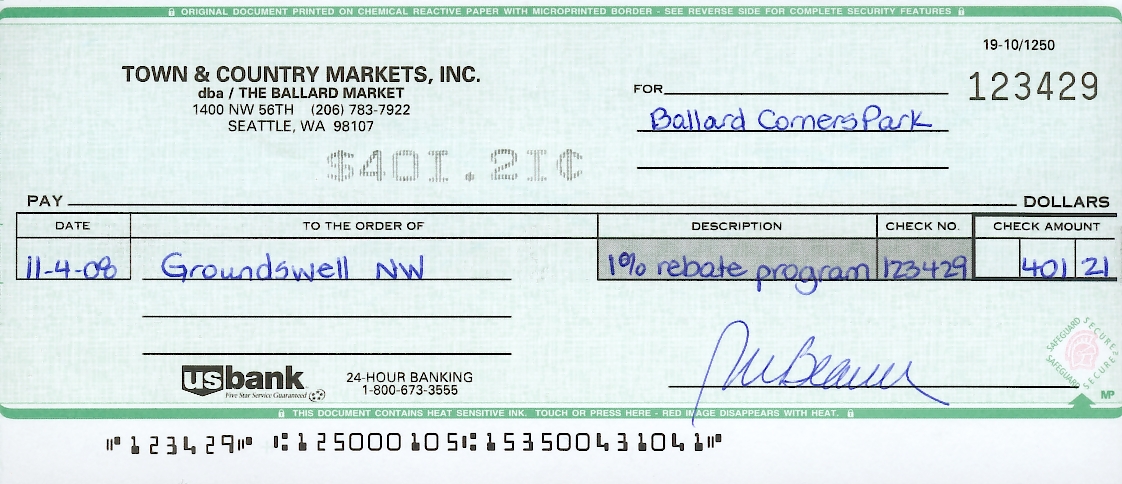 ORIGINAL DOCUMENT PRINTED ON CHEMICAL REACTIVE PAPER WITH MICROPRINTED BORDER - SEE REVERSE SIDE FOR COMPLETE SECURITY FEATURES
19-10/1250
TOWN & COUNTRY MARKETS, INC.
dba / THE BALLARD MARKET
1400 NW 56TH (206) 783-7922
SEATTLE, WA 98107
FOR
123429
Ballard Corners Park
$401.21¢
PAY DOLLARS
DATE TO THE ORDER OF DESCRIPTION CHECK NO. CHECK AMOUNT
11-4-08 Groundswell NW 1% rebate program 123429 401 21
SAFEGUARD SECURE
SAFEGUARD SECURE
usbank
Five Star Service Guaranteed
24-HOUR BANKING
1-800-673-3555
MP
THIS DOCUMENT CONTAINS HEAT SENSITIVE INK. TOUCH OR PRESS HERE - RED IMAGE DISAPPEARS WITH HEAT.
⑈123429⑈ ⑆125000105⑆153500431041⑈